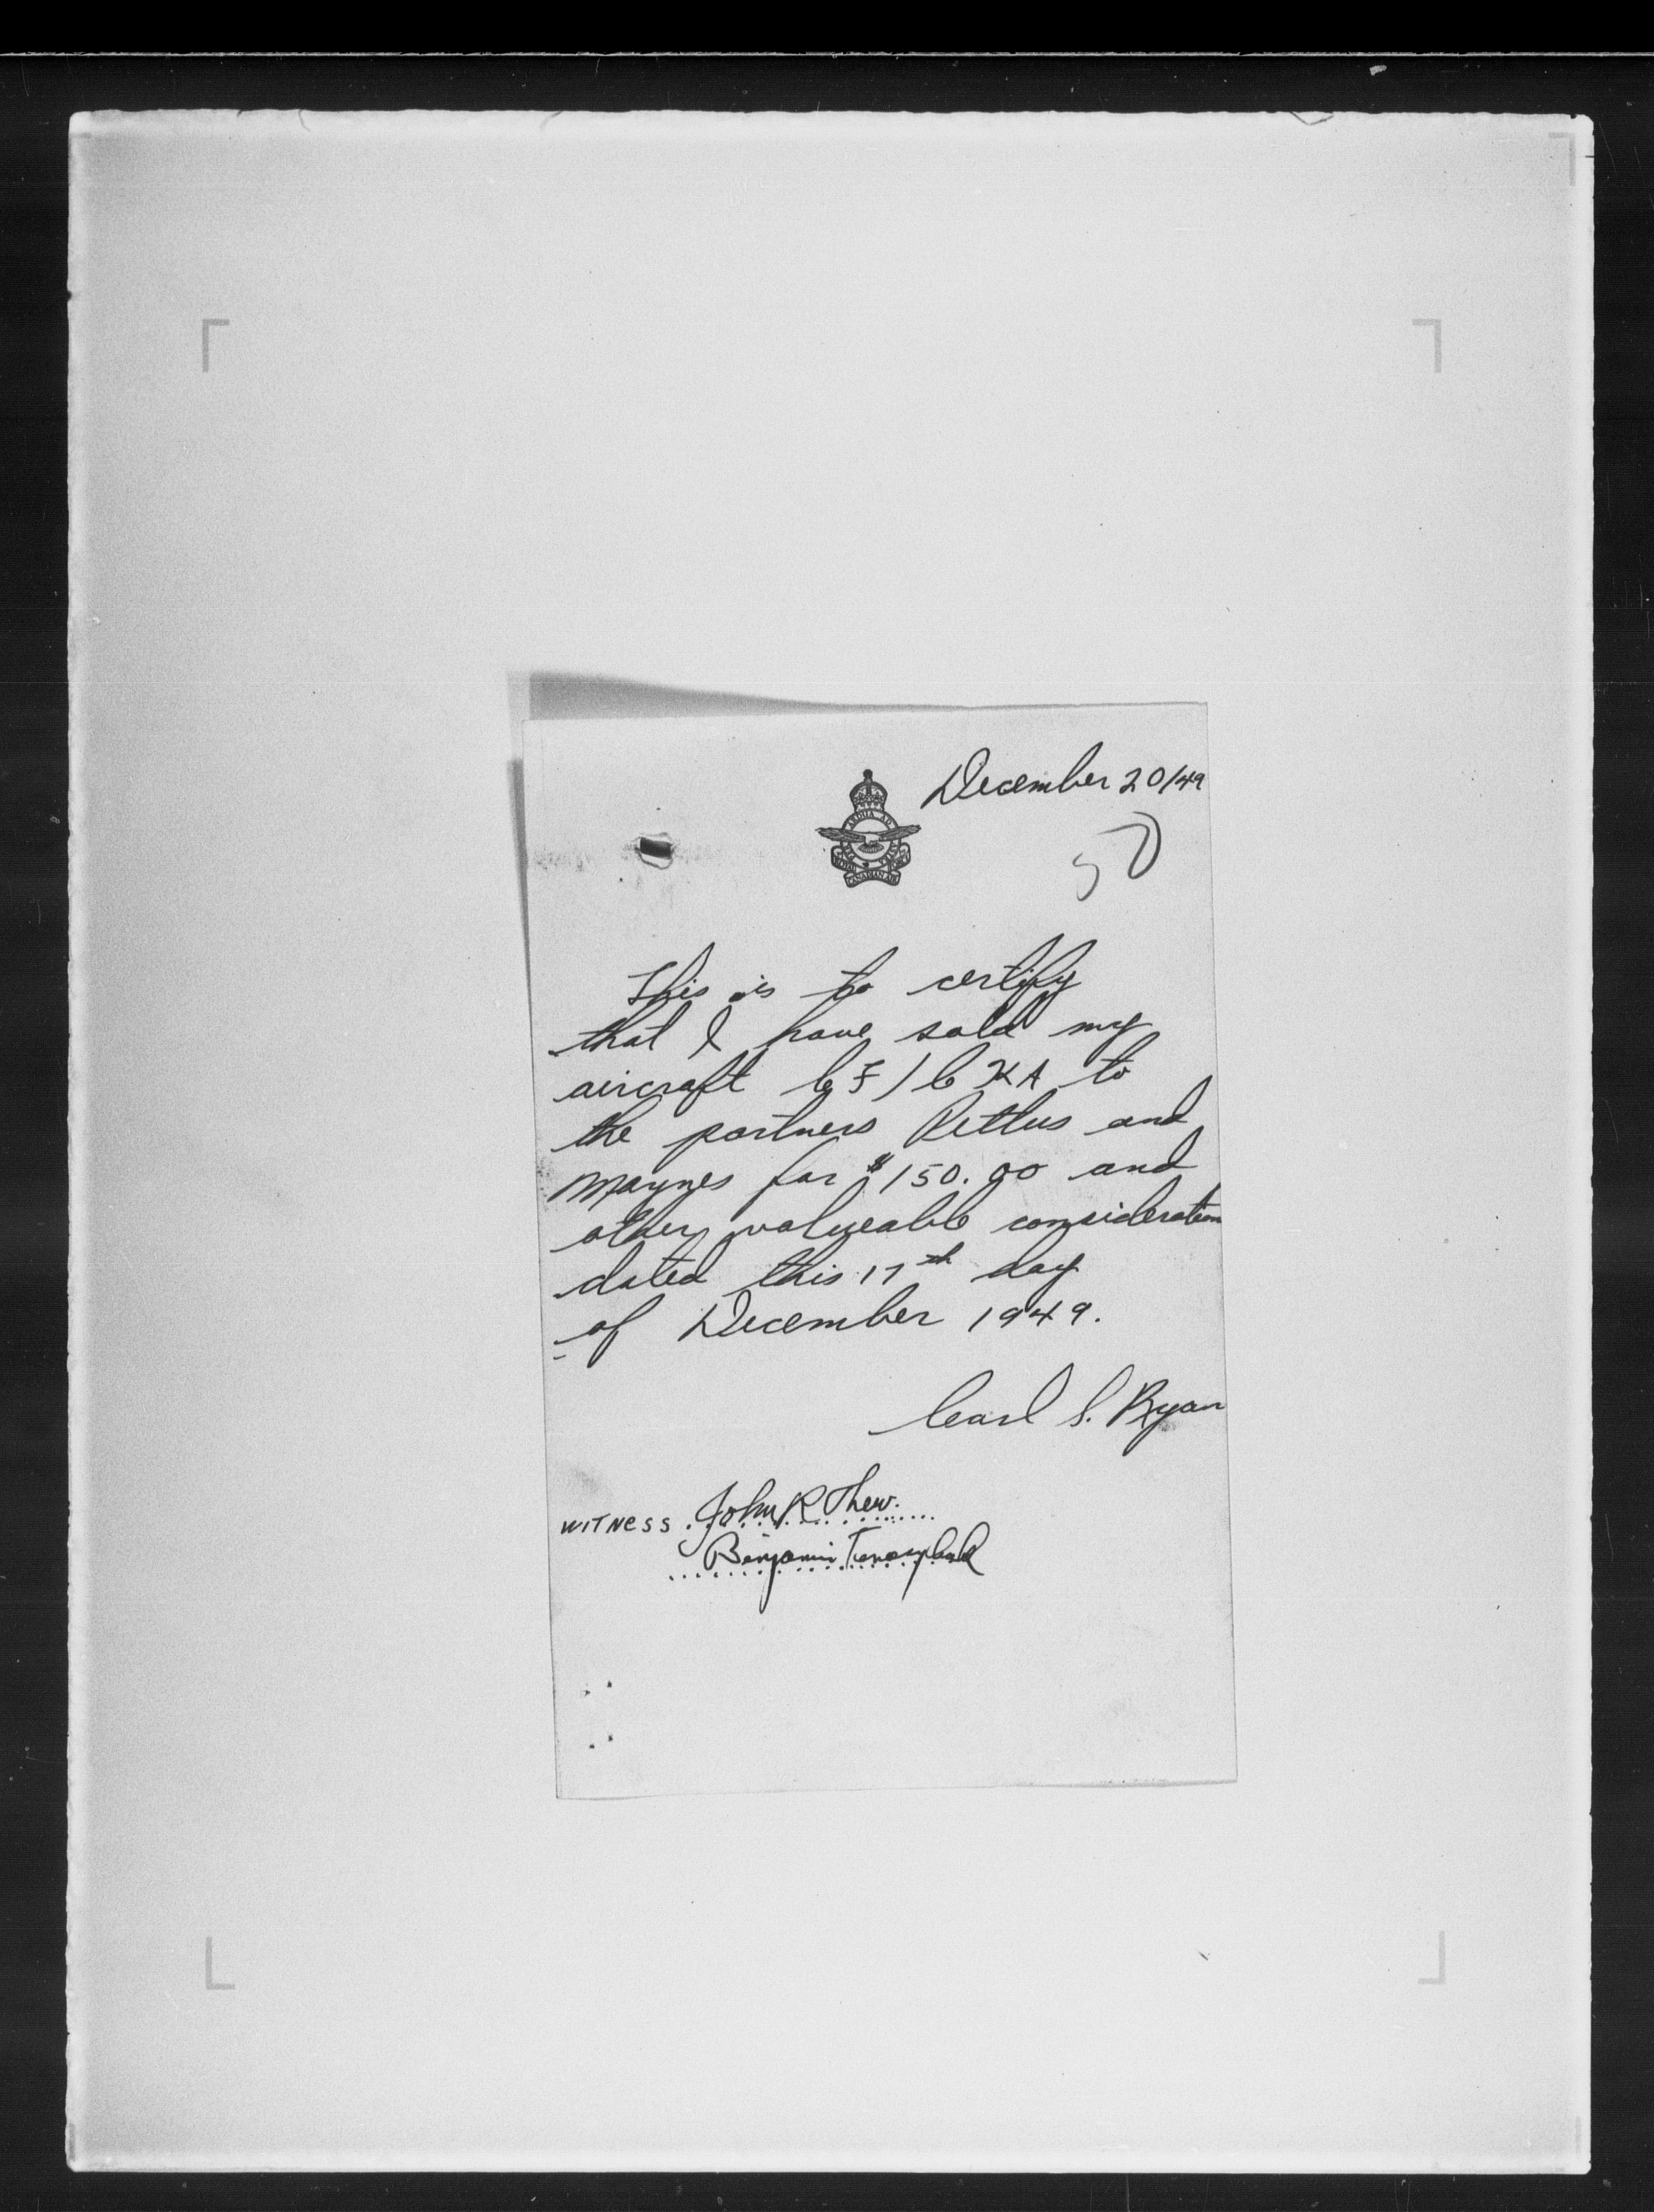 December 20/49
PER ARDUA AD ASTRA
ROYAL CANADIAN AIR FORCE
50
This is to certify
that I have sold my
aircraft CF/CKA to
the partners and
Maynes for $150.00 and
other valueable consideration
dated this 17th day
of December 1949.
Carl S. Ryan
WITNESS John R Thew.
Benjamin